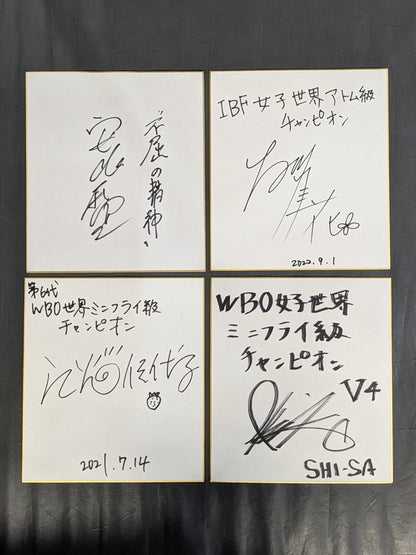 不屈の精神
IBF女子世界アトム級
チャンピオン
岩川美花
2022.9.1
第6代
WBO世界ミニフライ級
チャンピオン
江畑佳代子
2021.7.14
WBO女子世界
ミニフライ級
チャンピオン
V4
SHI-SA